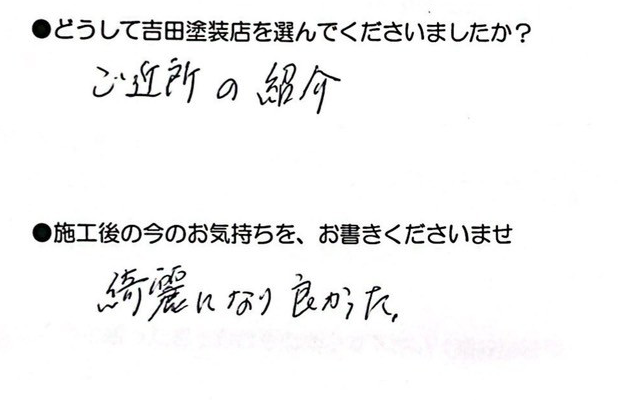 ●どうして吉田塗装店を選んでくださいましたか？
ご近所の紹介
●施工後の今のお気持ちを、お書きくださいませ
綺麗になり良かった。